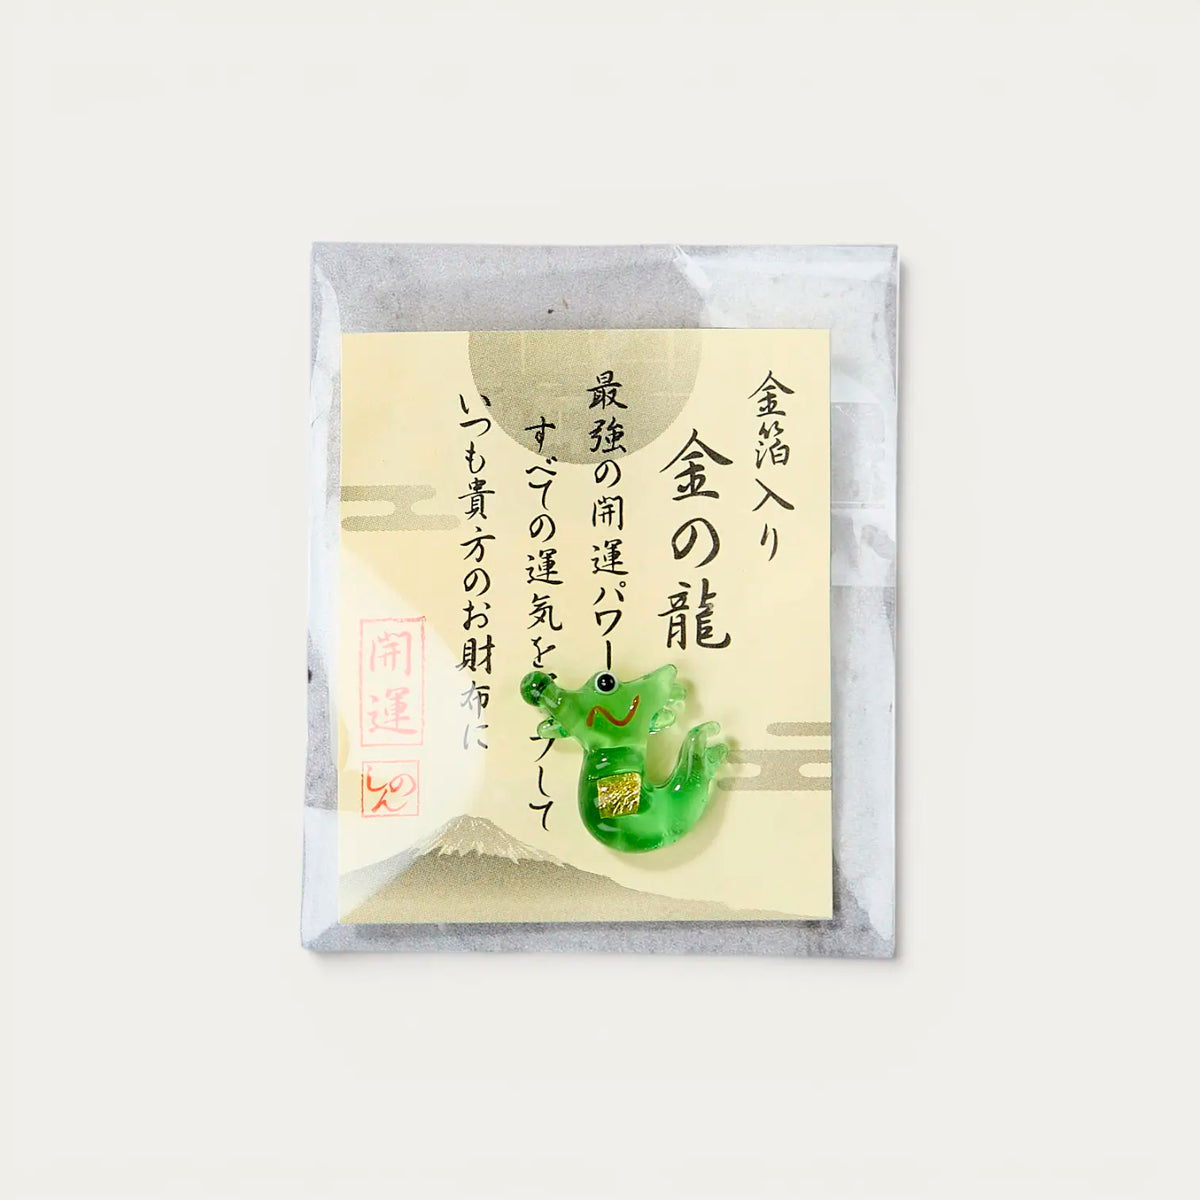 金箔入り
金の龍
最強の開運パワー
すべての運気を
プして
いつも貴方のお財布に
開運
しのん